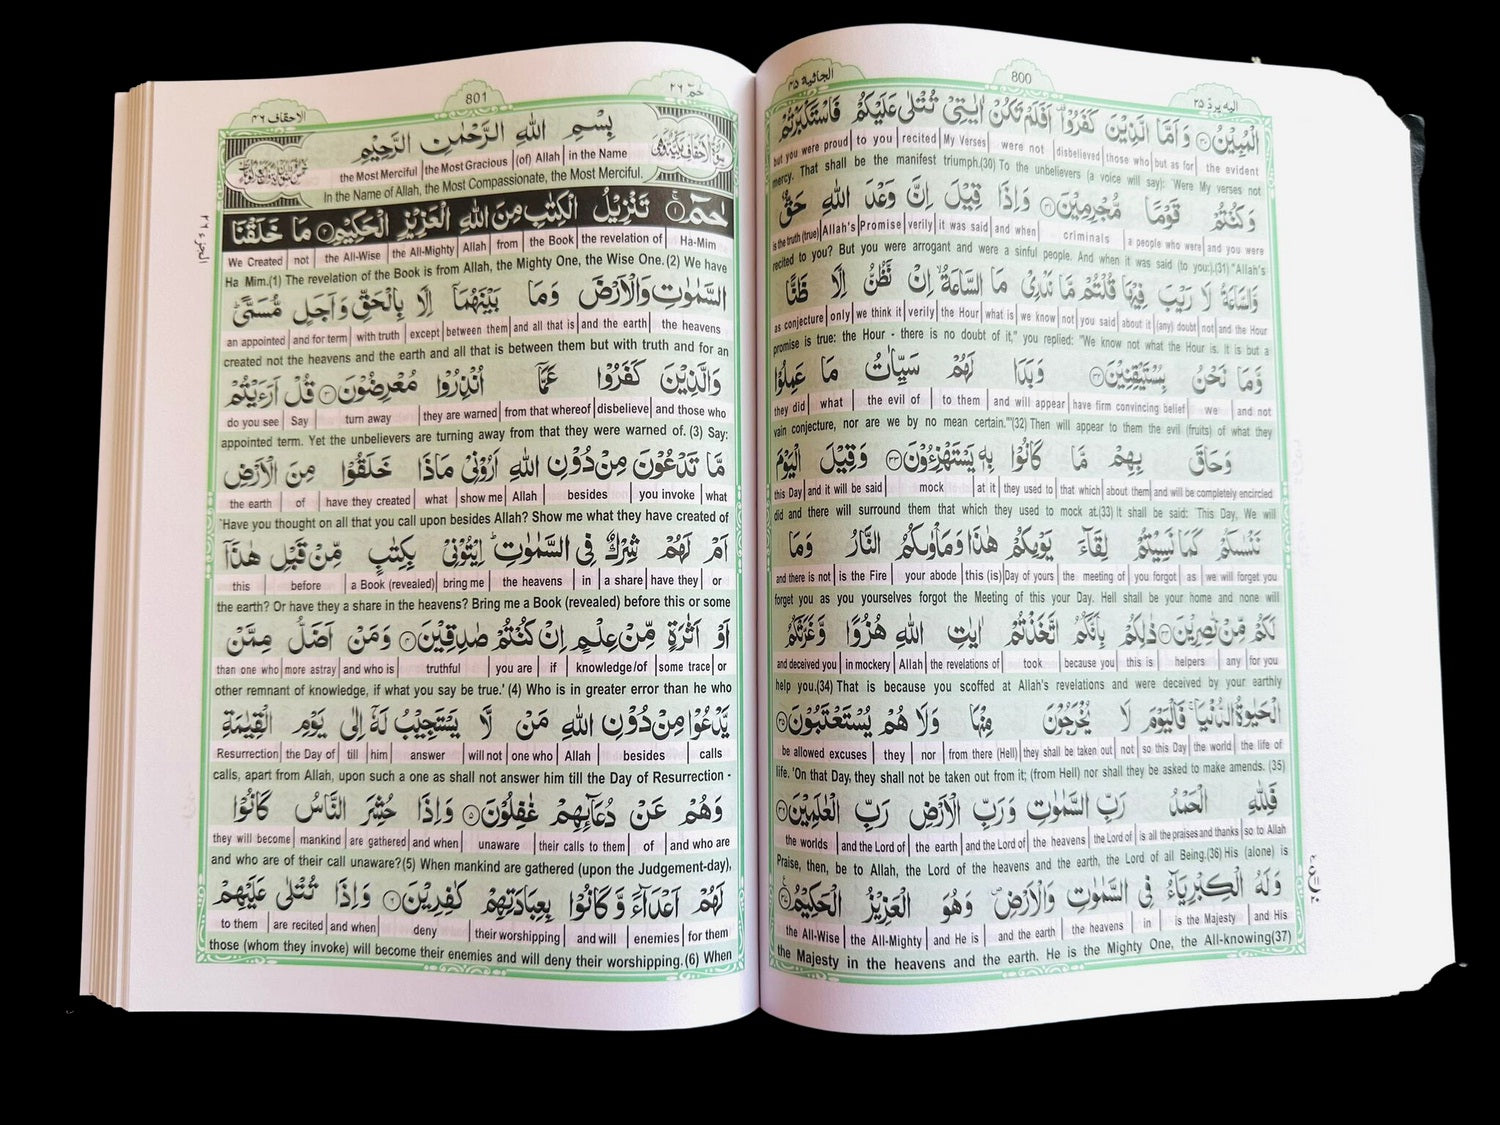 الجاثية ٤٥
800
اليه يردّ ٢٥
الْمُبِيْنُ ۝٣٠ وَ اَمَّا الَّذِيْنَ كَفَرُوْا ۫ اَفَلَمْ تَكُنْ اٰيٰتِيْ تُتْلٰى عَلَيْكُمْ فَاسْتَكْبَرْتُمْ
but you were proud | to you | recited | My Verses | were not | disbelieved | those who | but as for | the evident
mercy. That shall be the manifest triumph.(30) To the unbelievers (a voice will say): 'Were My verses not
وَ كُنْتُمْ قَوْمًا مُّجْرِمِيْنَ ۝٣١ وَ اِذَا قِيْلَ اِنَّ وَعْدَ اللّٰهِ حَقٌّ
is the truth (true) | Allah's | Promise | verily | it was said | and when | criminals | a people who were | and you were
recited to you? But you were arrogant and were a sinful people. And when it was said (to you:).(31) "Allah's
وَّ السَّاعَةُ لَا رَيْبَ فِيْهَا قُلْتُمْ مَّا نَدْرِيْ مَا السَّاعَةُ ۙ اِنْ نَّظُنُّ اِلَّا ظَنًّا
as conjecture | only | we think it | verily | the Hour | what is | we know | not | you said | about it | (any) doubt | not | and the Hour
promise is true: the Hour - there is no doubt of it," you replied: "We know not what the Hour is. It is but a
وَّ مَا نَحْنُ بِمُسْتَيْقِنِيْنَ ۝٣٢ وَ بَدَا لَهُمْ سَيِّاٰتُ مَا عَمِلُوْا
they did | what | the evil of | to them | and will appear | have firm convincing belief | we | and not
vain conjecture, nor are we by no mean certain."'(32) Then will appear to them the evil (fruits) of what they
وَحَاقَ بِهِمْ مَّا كَانُوْا بِهٖ يَسْتَهْزِءُوْنَ ۝٣٣ وَقِيْلَ الْيَوْمَ
this Day | and it will be said | mock | at it | they used to | that which | about them | and will be completely encircled
did and there will surround them that which they used to mock at.(33) It shall be said: 'This Day, We will
نَنْسٰىكُمْ كَمَا نَسِيْتُمْ لِقَآءَ يَوْمِكُمْ هٰذَا وَمَاْوٰىكُمُ النَّارُ وَمَا
and there is not | is the Fire | your abode | this (is) | Day of yours | the meeting of | you forgot | as | we will forget you
forget you as you yourselves forgot the Meeting of this your Day. Hell shall be your home and none will
لَكُمْ مِّنْ نّٰصِرِيْنَ ۝٣٤ ذٰلِكُمْ بِاَنَّكُمُ اتَّخَذْتُمْ اٰيٰتِ اللّٰهِ هُزُوًا وَّ غَرَّتْكُمُ
and deceived you | in mockery | Allah | the revelations of | took | because you | this is | helpers | any | for you
help you.(34) That is because you scoffed at Allah's revelations and were deceived by your earthly
الْحَيٰوةُ الدُّنْيَا ۚ فَالْيَوْمَ لَا يُخْرَجُوْنَ مِنْهَا وَلَا هُمْ يُسْتَعْتَبُوْنَ ۝٣٥
be allowed excuses | they | nor | from there (Hell) | they shall be taken out | not | so this Day | the world | the life of
life. 'On that Day, they shall not be taken out from it; (from Hell) nor shall they be asked to make amends. (35)
فَلِلّٰهِ الْحَمْدُ رَبِّ السَّمٰوٰتِ وَ رَبِّ الْاَرْضِ رَبِّ الْعٰلَمِيْنَ ۝٣٦
the worlds | and the Lord of | the earth | and the Lord of | the heavens | the Lord of | is all the praises and thanks | so to Allah
Praise, then, be to Allah, the Lord of the heavens and the earth, the Lord of all Being.(36) His (alone) is
وَ لَهُ الْكِبْرِيَآءُ فِي السَّمٰوٰتِ وَ الْاَرْضِ ۪ وَ هُوَ الْعَزِيْزُ الْحَكِيْمُ ۝٣٧
the All-Wise | the All-Mighty | and He is | and the earth | the heavens | in | is the Majesty | and His
the Majesty in the heavens and the earth. He is the Mighty One, the All-knowing(37)
الاحقاف ٤٦
801
حٰمٓ ٢٦
بِسْمِ اللّٰهِ الرَّحْمٰنِ الرَّحِيْمِ
the Most Merciful | the Most Gracious | (of) Allah | in the Name
In the Name of Allah, the Most Compassionate, the Most Merciful.
حٰمٓ ۝١ تَنْزِيْلُ الْكِتٰبِ مِنَ اللّٰهِ الْعَزِيْزِ الْحَكِيْمِ ۝٢ مَا خَلَقْنَا
We Created | not | the All-Wise | the All-Mighty | Allah | from | the Book | the revelation of | Ha-Mim
Ha Mim.(1) The revelation of the Book is from Allah, the Mighty One, the Wise One.(2) We have
السَّمٰوٰتِ وَالْاَرْضَ وَمَا بَيْنَهُمَآ اِلَّا بِالْحَقِّ وَ اَجَلٍ مُّسَمًّى ؕ
an appointed | and for term | with truth | except | between them | and all that is | and the earth | the heavens
created not the heavens and the earth and all that is between them but with truth and for an
وَالَّذِيْنَ كَفَرُوْا عَمَّآ اُنْذِرُوْا مُعْرِضُوْنَ ۝٣ قُلْ اَرَءَيْتُمْ
do you see | Say | turn away | they are warned | from that whereof | disbelieve | and those who
appointed term. Yet the unbelievers are turning away from that they were warned of. (3) Say:
مَّا تَدْعُوْنَ مِنْ دُوْنِ اللّٰهِ اَرُوْنِيْ مَاذَا خَلَقُوْا مِنَ الْاَرْضِ
the earth | of | have they created | what | show me | Allah | besides | you invoke | what
'Have you thought on all that you call upon besides Allah? Show me what they have created of
اَمْ لَهُمْ شِرْكٌ فِي السَّمٰوٰتِ ؕ اِيْتُوْنِيْ بِكِتٰبٍ مِّنْ قَبْلِ هٰذَآ
this | before | a Book (revealed) | bring me | the heavens | in | a share | have they | or
the earth? Or have they a share in the heavens? Bring me a Book (revealed) before this or some
اَوْ اَثٰرَةٍ مِّنْ عِلْمٍ اِنْ كُنْتُمْ صٰدِقِيْنَ ۝٤ وَمَنْ اَضَلُّ مِمَّنْ
than one who | more astray | and who is | truthful | you are | if | knowledge/of | some trace | or
other remnant of knowledge, if what you say be true.' (4) Who is in greater error than he who
يَّدْعُوْا مِنْ دُوْنِ اللّٰهِ مَنْ لَّا يَسْتَجِيْبُ لَهٗٓ اِلٰى يَوْمِ الْقِيٰمَةِ
Resurrection | the Day of | till | him | answer | will not | one who | Allah | besides | calls
calls, apart from Allah, upon such a one as shall not answer him till the Day of Resurrection -
وَهُمْ عَنْ دُعَآىِٕهِمْ غٰفِلُوْنَ ۝٥ وَاِذَا حُشِرَ النَّاسُ كَانُوْا
they will become | mankind | are gathered | and when | unaware | their calls to them | of | and who are
and who are of their call unaware?(5) When mankind are gathered (upon the Judgement-day),
لَهُمْ اَعْدَآءً وَّ كَانُوْا بِعِبَادَتِهِمْ كٰفِرِيْنَ ۝٦ وَاِذَا تُتْلٰى عَلَيْهِمْ
to them | are recited | and when | deny | their worshipping | and will | enemies | for them
those (whom they invoke) will become their enemies and will deny their worshipping.(6) When
الجزء ٢٦